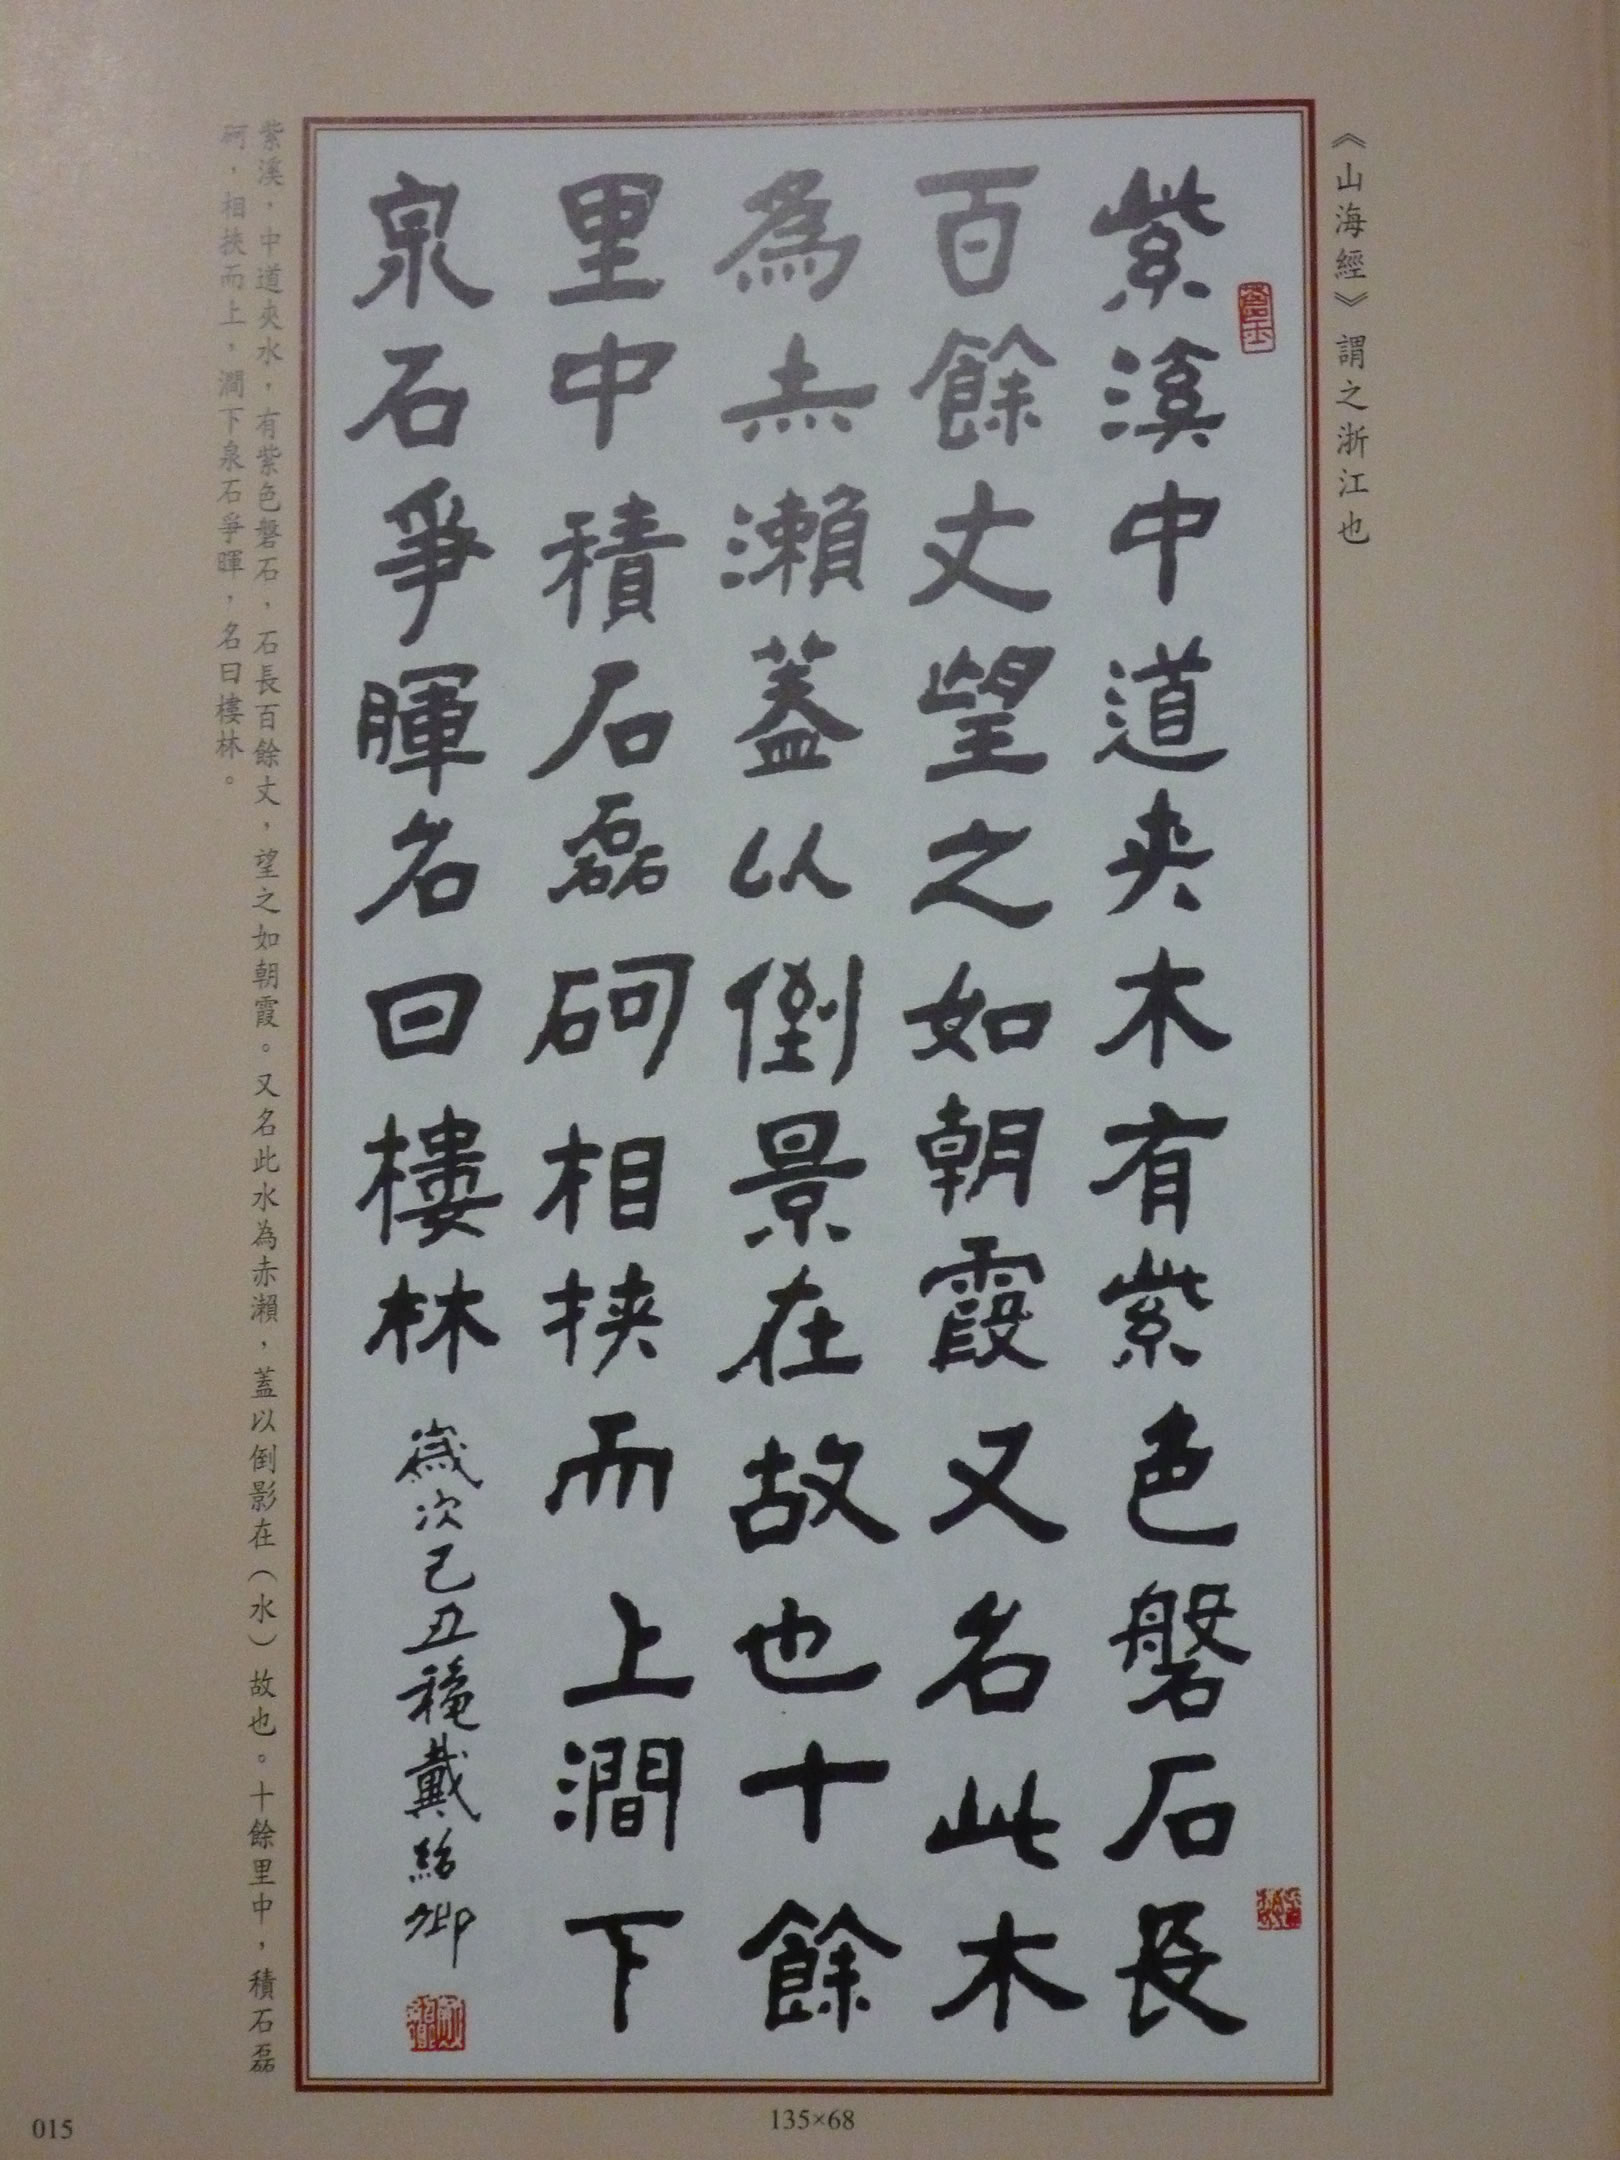 《山海經》謂之浙江也
紫溪中道夾木有紫色磐石長
百餘丈望之如朝霞又名此木
為赤瀨蓋以倒景在故也十餘
里中積石磊砢相挾而上澗下
泉石爭暉名曰樓林 歲次己丑穐戴紹卿
紫溪，中道夾水，有紫色磐石，石長百餘丈，望之如朝霞。又名此水為赤瀨，蓋以倒影在（水）故也。十餘里中，積石磊
砢，相挾而上，澗下泉石爭暉，名曰樓林。
135×68
015